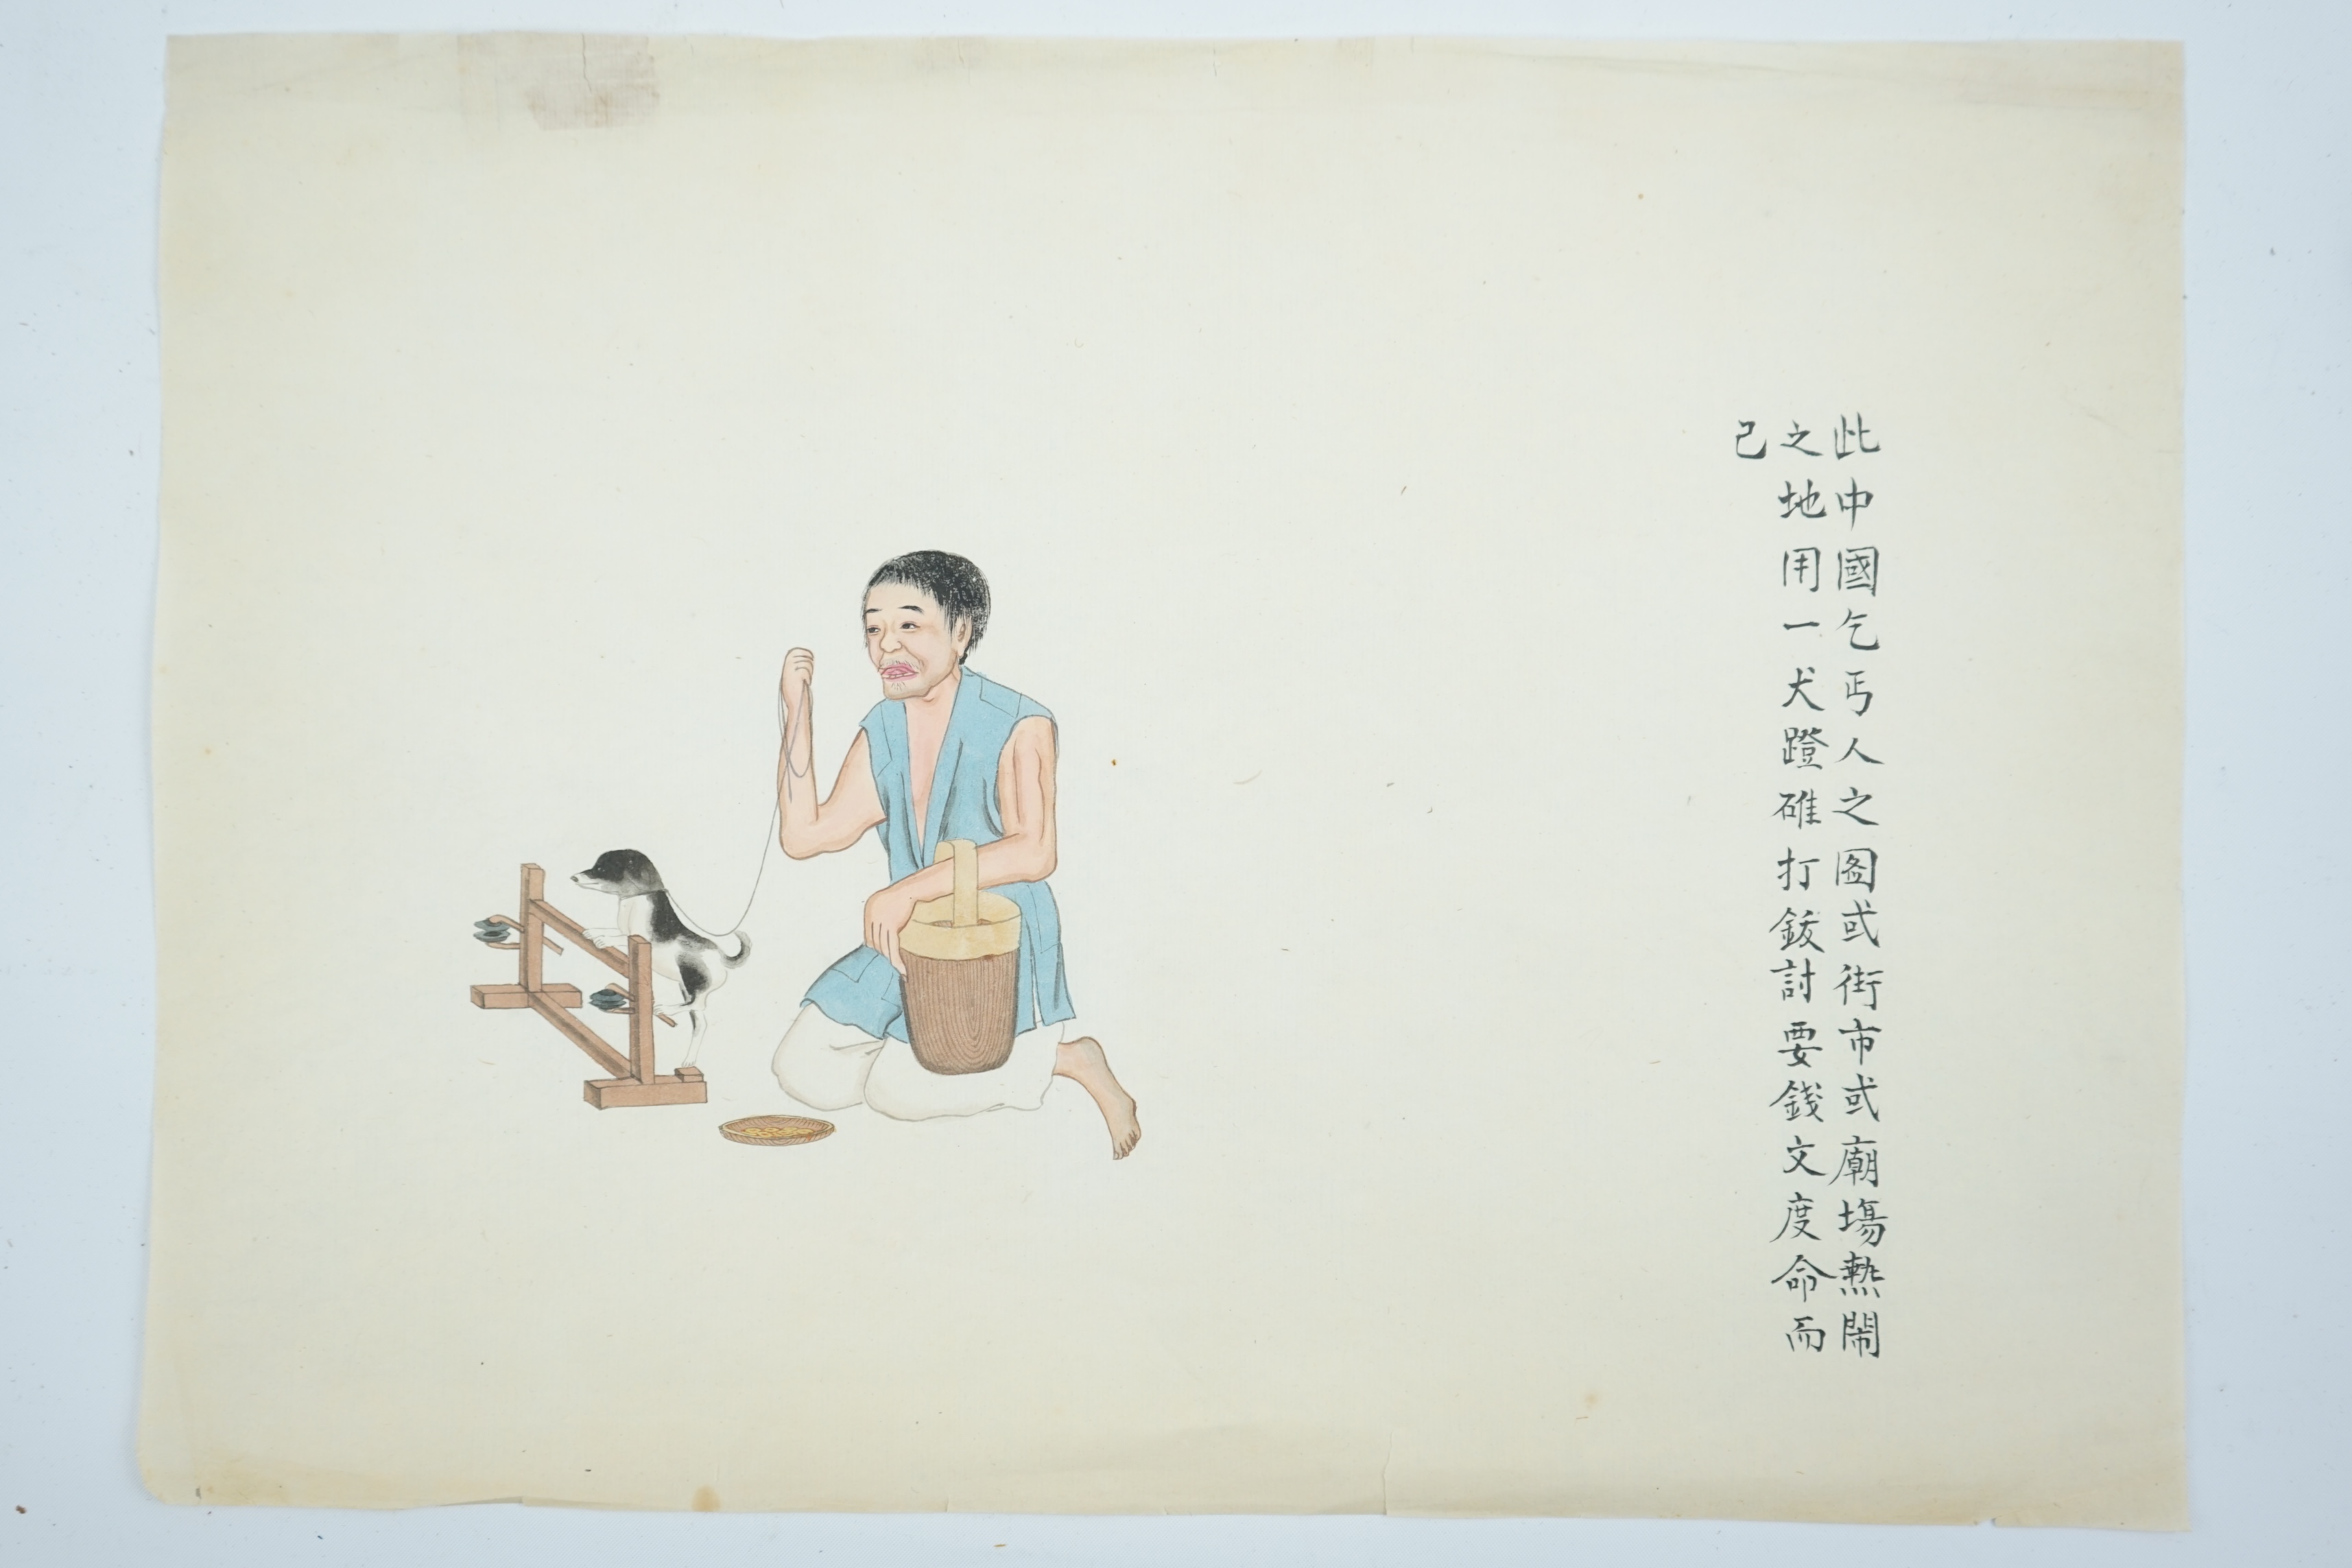 此中國乞丐人之圖或街市或廟塲熱鬧
之地用一犬蹬碓打鈸討要錢文度命而
已